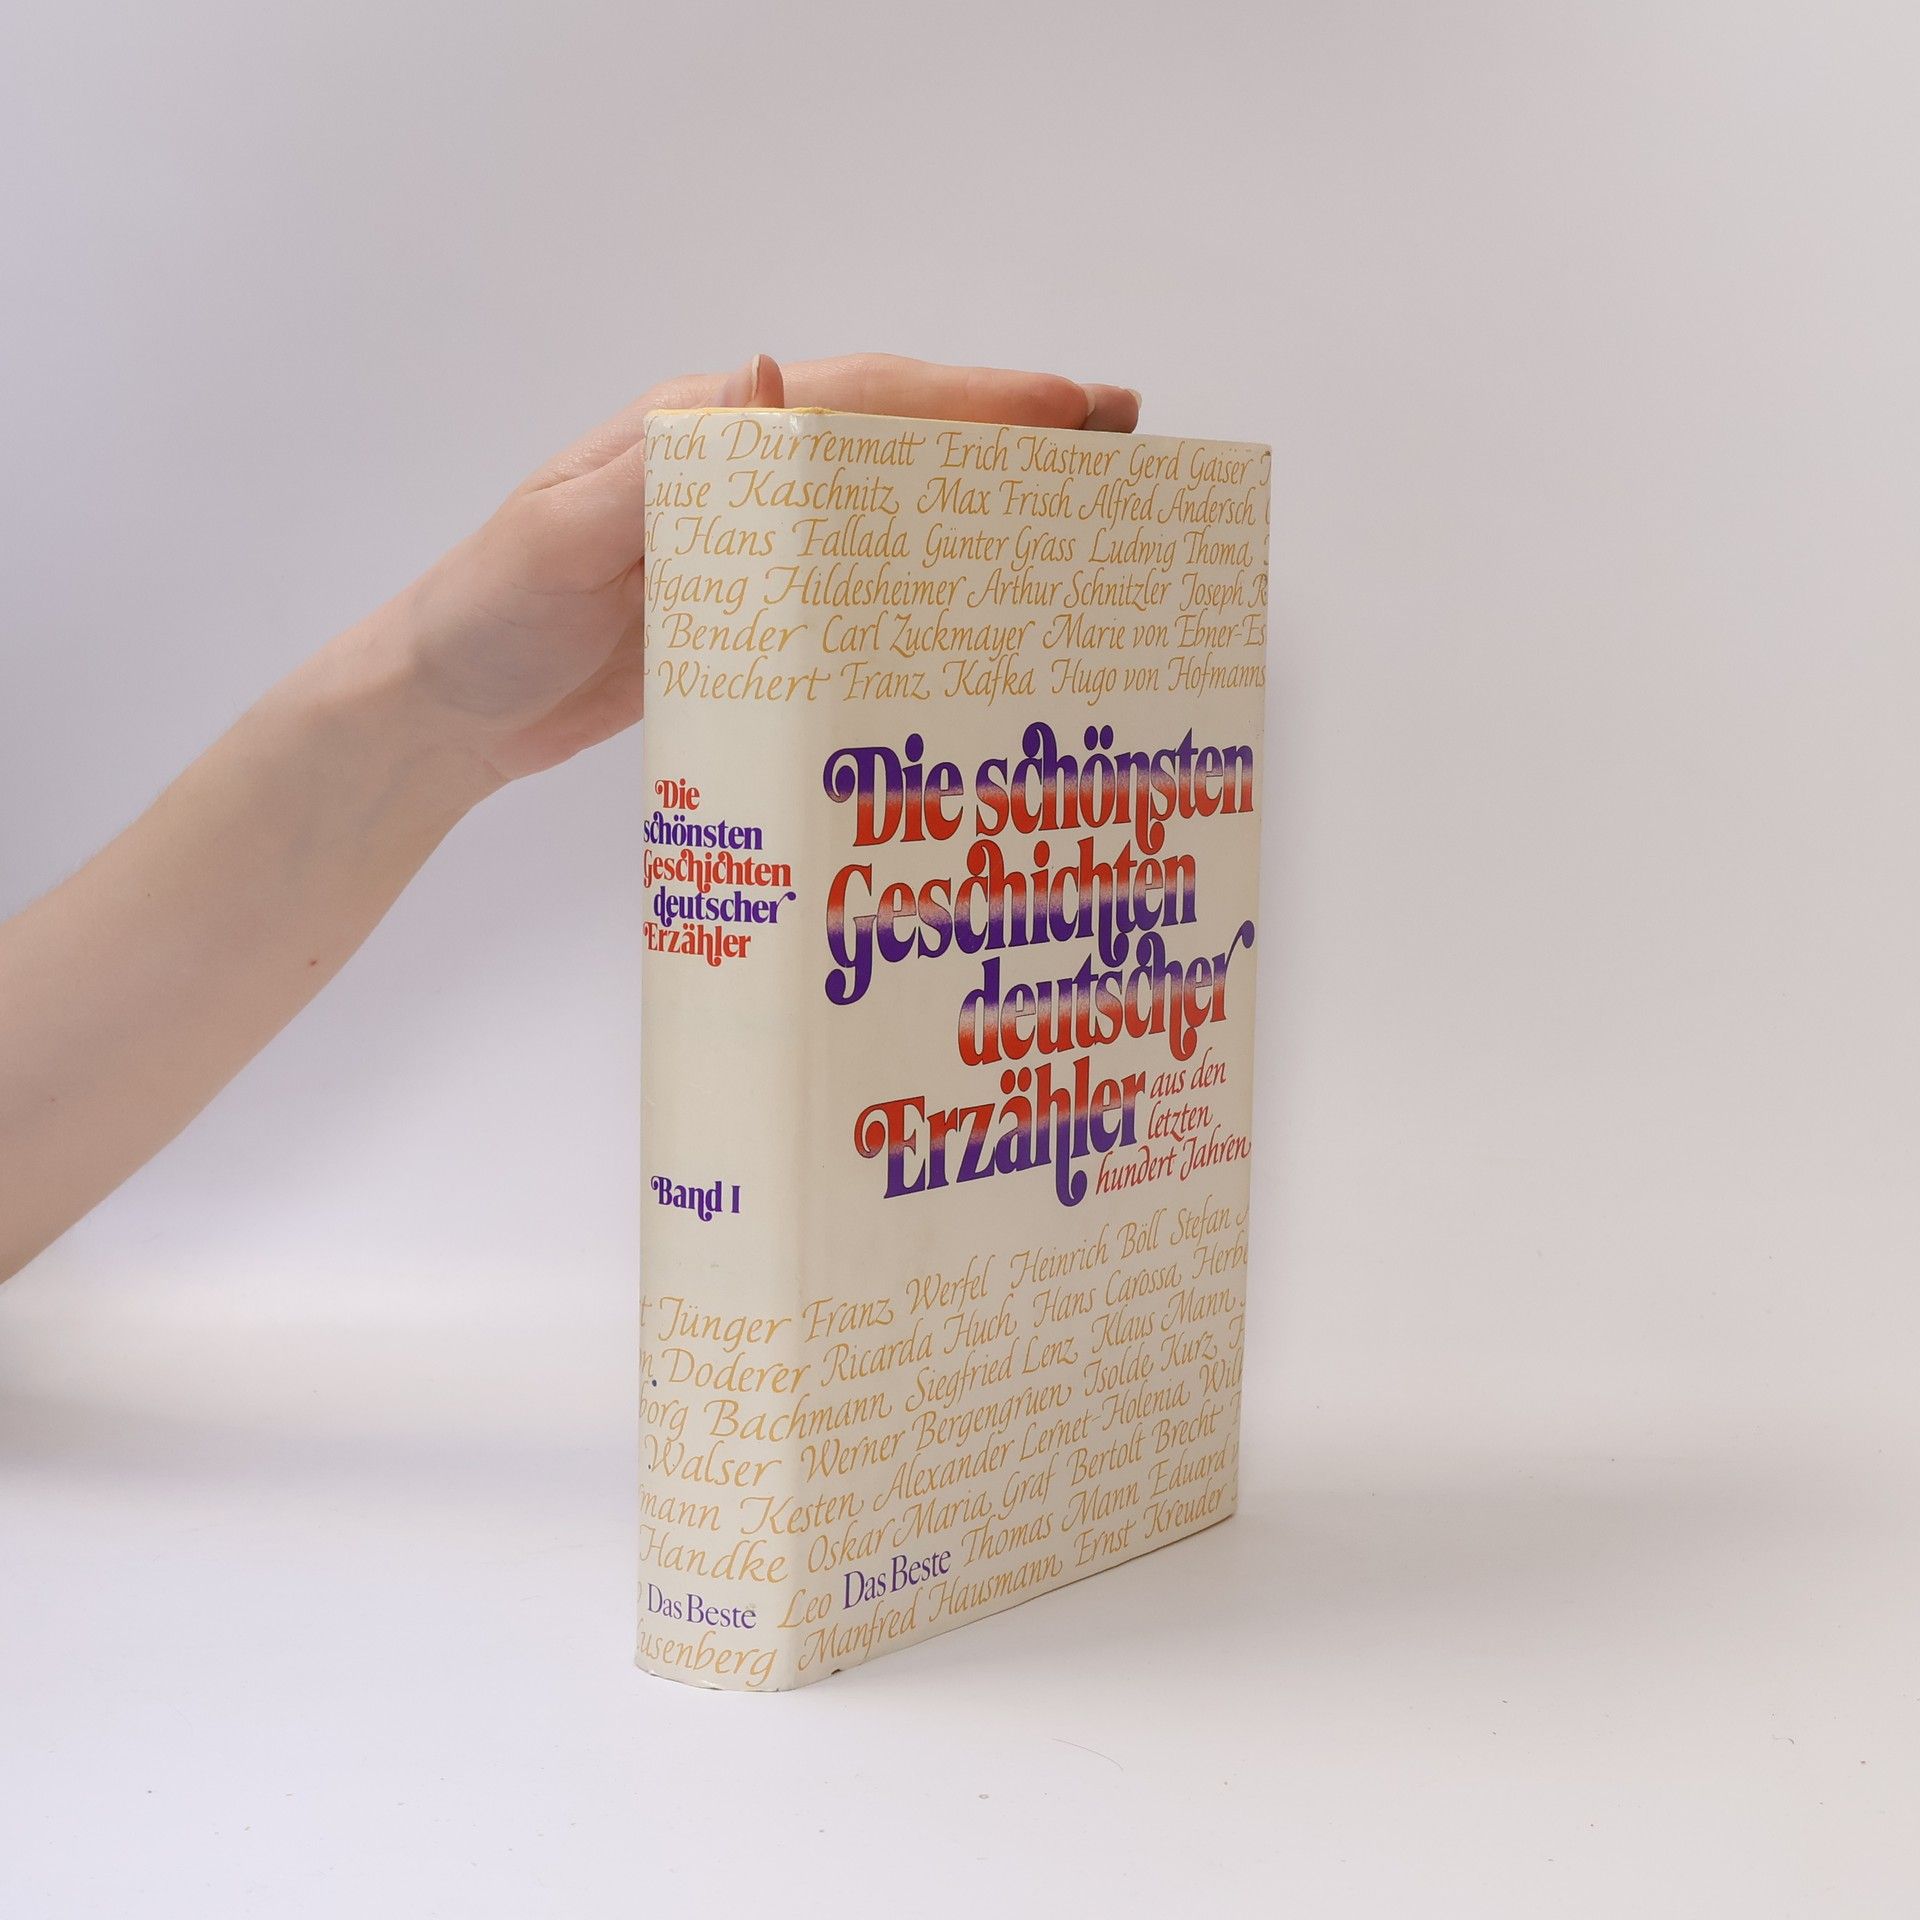 Dürrenmatt Erich Kästner Gerd Gaiser
Luise Kaschnitz Max Frisch Alfred Andersch
Hans Fallada Günter Grass Ludwig Thoma
Hildesheimer Arthur Schnitzler Joseph
Bender Carl Zuckmayer Marie von
Wiechert Franz Kafka Hugo von
Die
schönsten
Geschichten
deutscher
Erzähler
Band I
Die schönsten
Geschichten
deutscher
Erzähler
aus den
letzten
hundert Jahren
Jünger Franz Werfel Heinrich Böll Stefan
Doderer Ricarda Huch Hans Carossa
Bachmann Siegfried Lenz Klaus Mann
Walser Werner Bergengruen Isolde Kurz
Kesten Alexander Lernet-Holenia
Handke Oskar Maria Graf Bertolt Brecht
Das Beste Leo Das Beste Thomas Mann Eduard
Manfred Hausmann Ernst Kreuder